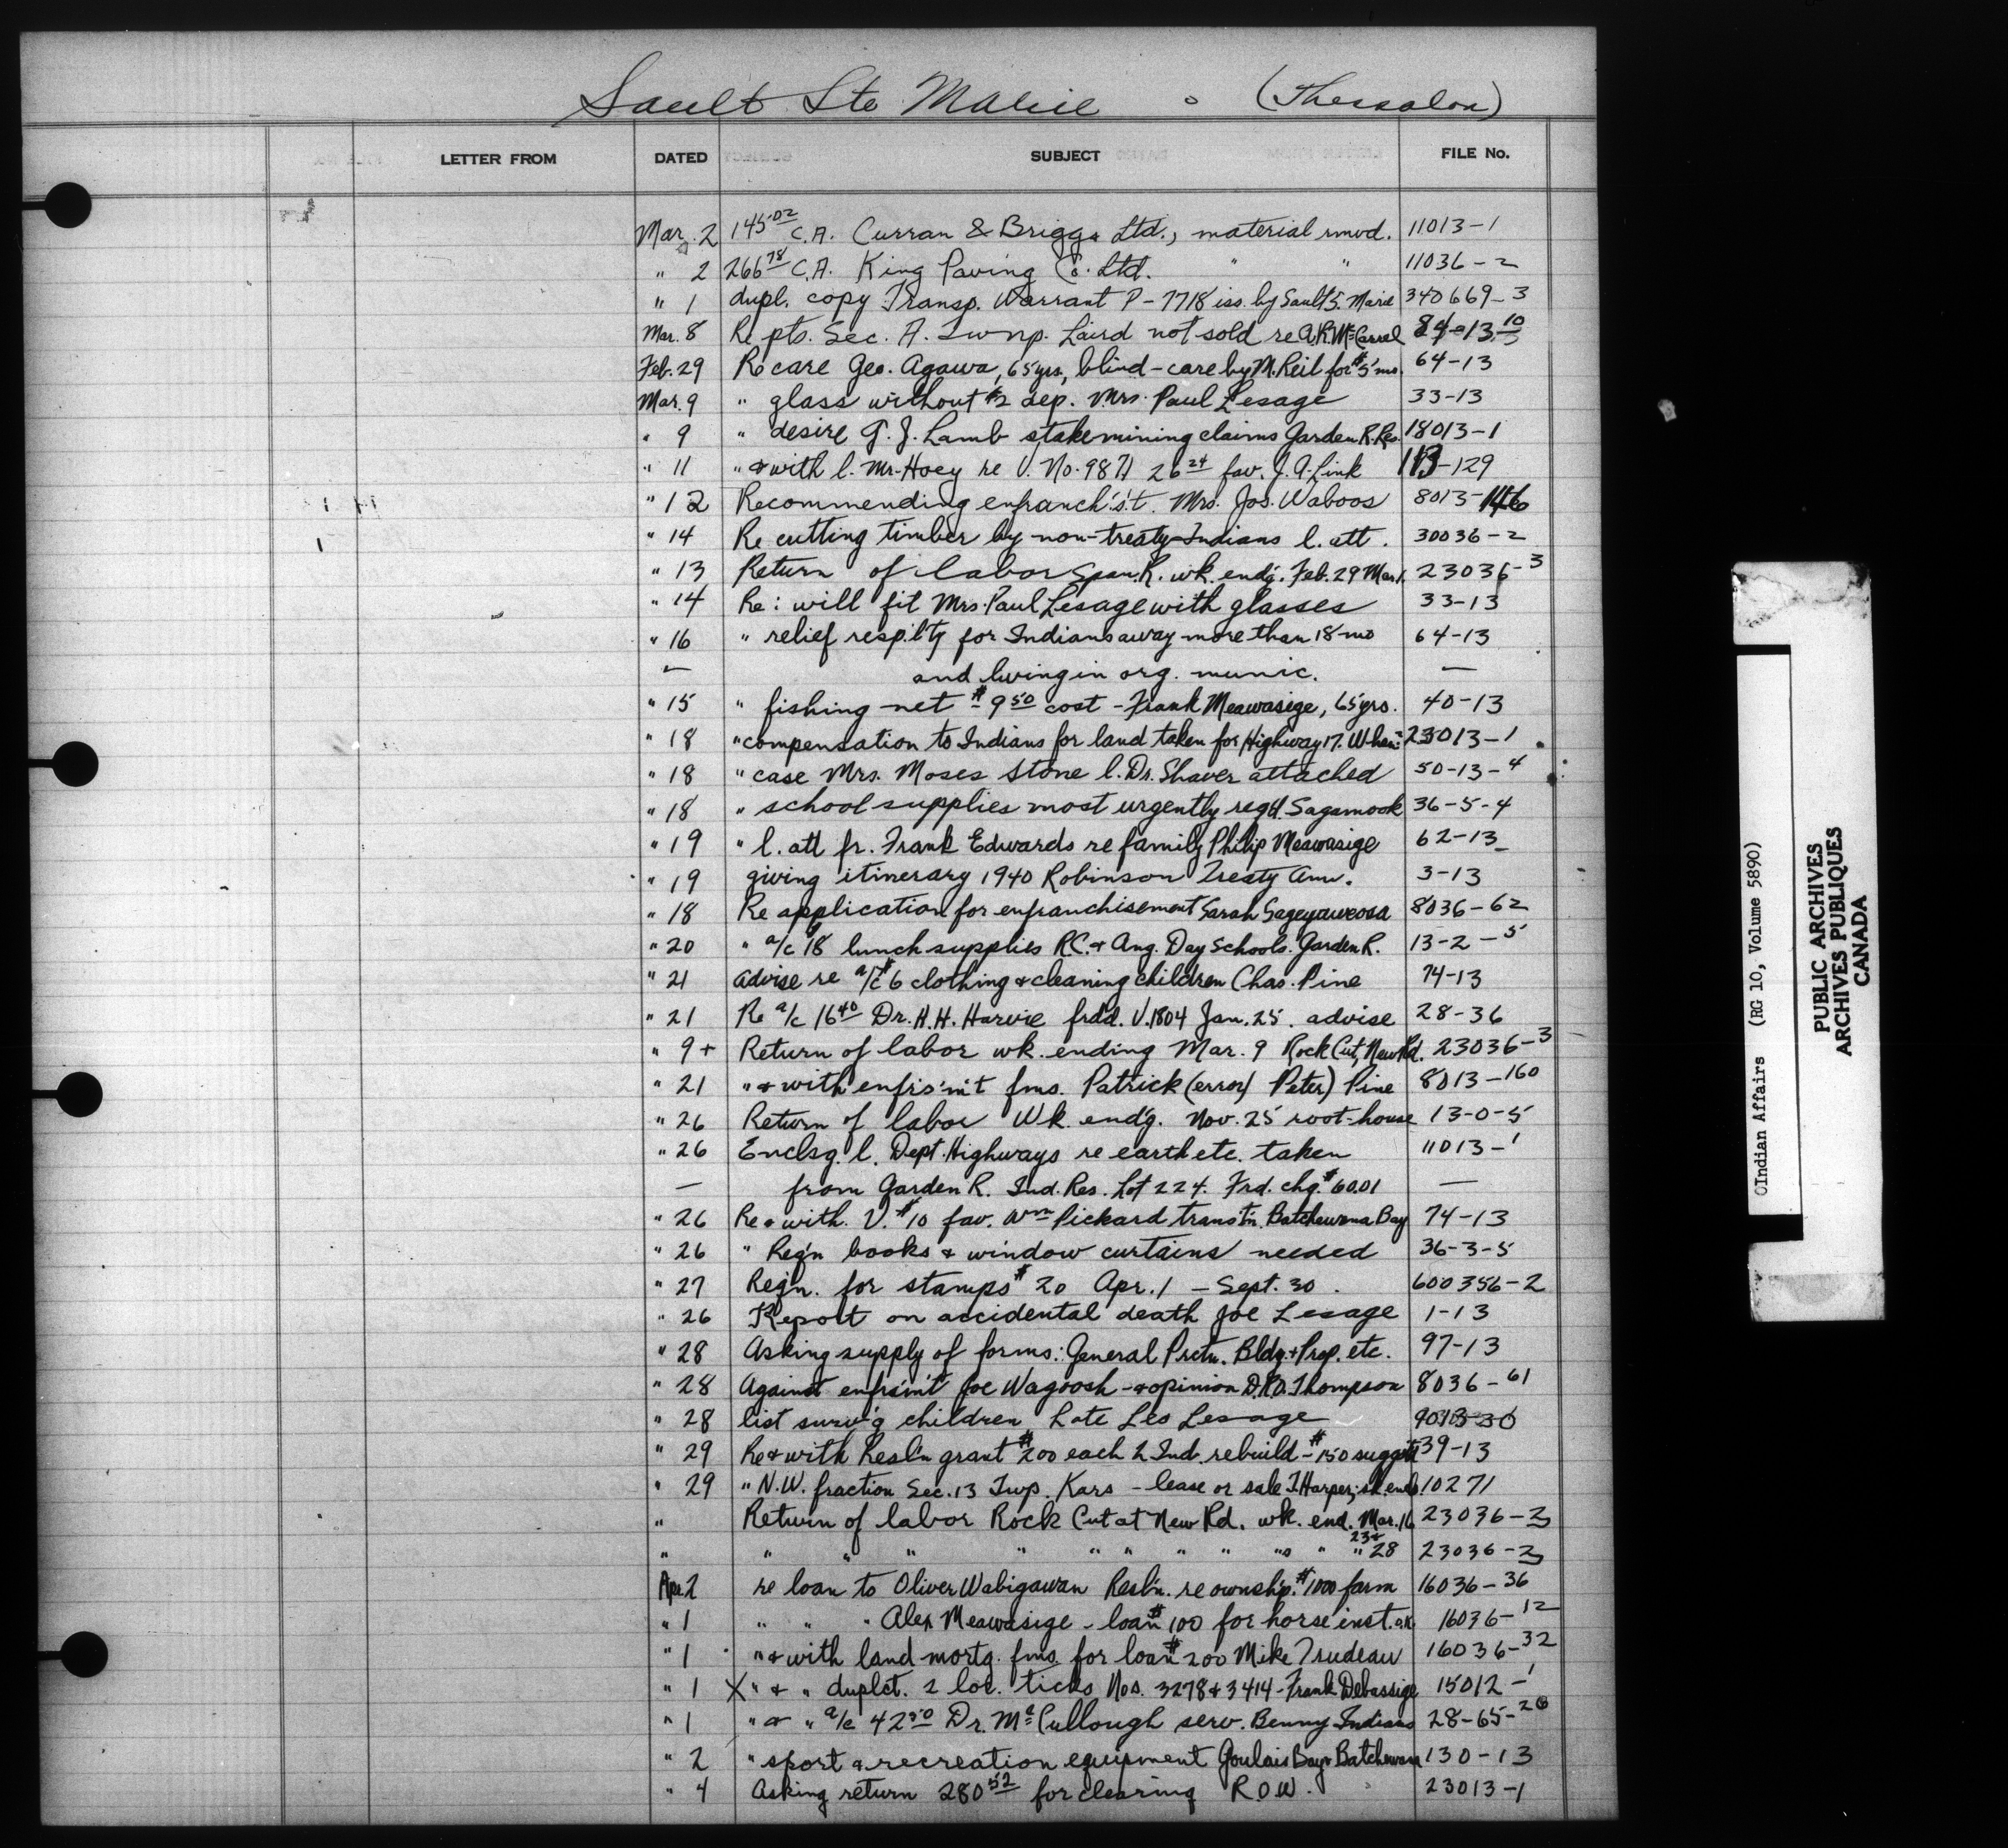 Sault Ste Marie - (Thessalon)
LETTER FROM DATED SUBJECT FILE No.
Mar. 2 145.02 C.A. Curran & Briggs Ltd., material rmvd. 11013-1
" 2 266 78 C.A. King Paving Co. Ltd. " " 11036-2
" 1 dupl. copy Transp. Warrant P-7718 iss. by Sault S. Marie 340669-3
Mar. 8 Re pts. Sec. A. Twnp. Laird not sold re A.R. McCarrel
Feb. 29 Re care Geo. Agawa, 65 yrs, blind - care by M. Reil for $5 mo. 64-13
Mar. 9 " glass without $2 dep. Mrs. Paul Lesage 33-13
" 9 " desire G. J. Lamb stake mining claims Garden R. Res. 18013-1
" 11 " & with l. Mr. Hoey re V. No. 9871 26 24 fav. J. A. Link 113-129
" 12 Recommending enfranch's't. Mrs. Jos. Waboos 8013-146
" 14 Re cutting timber by non-treaty Indians l. att. 30036-2
" 13 Return of labor Span. R. wk. end'g. Feb. 29 Mar. 1. 23036-3
" 14 Re: will fit Mrs. Paul Lesage with glasses 33-13
" 16 " relief resp'b'ty for Indians away more than 18 mo 64-13
— and living in org. munic. —
" 15 " fishing net $9 50 cost - Frank Meawasige, 65 yrs. 40-13
" 18 " compensation to Indians for land taken for Highway 17. When? 23013-1
" 18 " case Mrs. Moses Stone l. Dr. Shaver attached 50-13-4
" 18 " school supplies most urgently reqd. Sagamook 36-5-4
" 19 " l. att fr. Frank Edwards re family Philip Meawasige 62-13
" 19 giving itinerary 1940 Robinson Treaty Ann. 3-13
" 18 Re application for enfranchisement Sarah Sageyaweosa 8036-62
" 20 " a/c $18 lunch supplies R.C. & Ang. Day Schools. Garden R. 13-2-5
" 21 Advise re a/c $6 clothing & cleaning children Chas. Pine 74-13
" 21 Re a/c 16 40 Dr. H. H. Harvie frdd. V. 1804 Jan. 25. advise 28-36
" 9+ Return of labor wk. ending Mar. 9 Rock Cut, New Rd. 23036-3
" 21 " & with enfrs'm't fms. Patrick (error) Peter) Pine 8013-160
" 26 Return of labor Wk. end'g. Nov. 25 root-house 13-0-5
" 26 Enclsg. l. Dept. Highways re earth etc. taken 11013-1
— from Garden R. Ind. Res. Lot 224. Frd. chq. $60.01 —
" 26 Re & with. V. $10 fav. Wm Pickard trans't'n. Batchewana Bay 74-13
" 26 " Req'n books & window curtains needed 36-3-5
" 27 Req'n. for stamps $20 Apr. 1 - Sept. 30. 600356-2
" 26 Report on accidental death Joe Lesage 1-13
" 28 Asking supply of forms: General Prctn. Bldg. & Prep. etc. 97-13
" 28 Against enfrs'm't Joe Wagoosh - & opinion D.R.D. Thompson 8036-61
" 28 list surv'g children Late Leo Lesage 9013-30
" 29 Re & with Resl'n grant $200 each 2 Ind. rebuild - $150 suggstd 39-13
" 29 " N.W. fraction Sec. 13 Twp. Kars - lease or sale T. Harper; sk. encl. 10271
" Return of labor Rock Cut at New Rd. wk. end. Mar. 16 23036-3
" " " " " " " " " " " " 23 & 28 23036-3
Apr. 2 re loan to Oliver Wabigawan Resl'n. re ownshp. $1000 farm 16036-36
" 1 " " " Alex Meawasige - loan $100 for horse inst. 16036-12
" 1 " & with land mortg. fms. for loan $200 Mike Trudeau 16036-32
" 1 X " & " duplct. 2 loc. ticks Nos. 3278 & 3414 - Frank Debassige 15012-1
" 1 " & " a/c 42 50 Dr. McCullough serv. Benny Indians 28-65-20
" 2 " sport & recreation equipment Goulais Bay & Batchewana 130-13
" 4 Asking return 280 52 for clearing R.O.W. 23013-1
OIndian Affairs (RG 10, Volume 5890)
PUBLIC ARCHIVES
ARCHIVES PUBLIQUES
CANADA